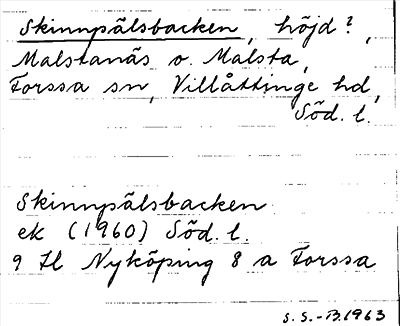 Skinnpälsbacken, höjd?,
Malstanäs o. Malsta,
Forssa sn, Villåttinge hd,
Söd. l.
Skinnpälsbacken
ek (1960) Söd. l.
9 H Nyköping 8 a Forssa
S. S.-B. 1963